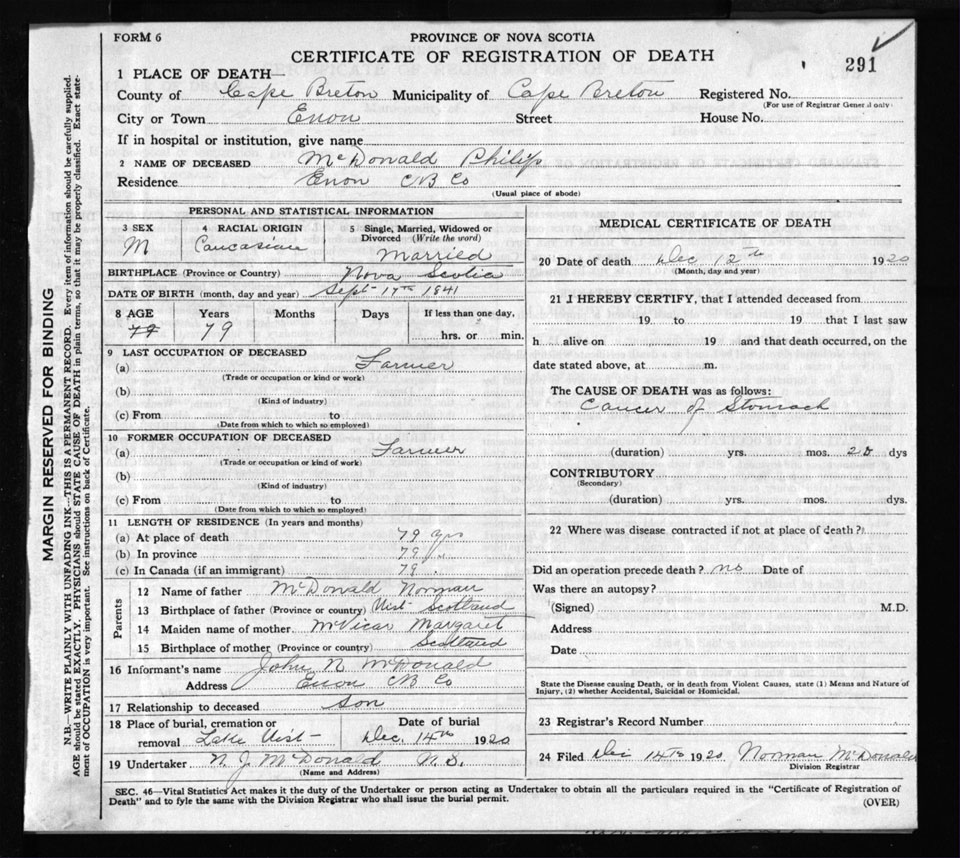 FORM 6
PROVINCE OF NOVA SCOTIA
CERTIFICATE OF REGISTRATION OF DEATH
291
1 PLACE OF DEATH—
County of Cape Breton Municipality of Cape Breton Registered No.
(For use of Registrar General only)
City or Town Enon Street House No.
If in hospital or institution, give name
2 NAME OF DECEASED McDonald Philip
Residence Enon CB Co
(Usual place of abode)
PERSONAL AND STATISTICAL INFORMATION
3 SEX 4 RACIAL ORIGIN 5 Single, Married, Widowed or Divorced (Write the word)
M Caucasian Married
BIRTHPLACE (Province or Country) Nova Scotia
DATE OF BIRTH (month, day and year) Sept 17th 1841
8 AGE Years Months Days If less than one day,
79 hrs. or min.
9 LAST OCCUPATION OF DECEASED
(a) Farmer
(Trade or occupation or kind or work)
(b)
(Kind of industry)
(c) From to
(Date from which to which so employed)
10 FORMER OCCUPATION OF DECEASED
(a) Farmer
(Trade or occupation or kind of work)
(b)
(Kind of industry)
(c) From to
(Date from which to which so employed)
11 LENGTH OF RESIDENCE (In years and months)
(a) At place of death 79 yrs
(b) In province 79
(c) In Canada (if an immigrant) 79
Parents
12 Name of father McDonald Norman
13 Birthplace of father (Province or country) Uist Scotland
14 Maiden name of mother McVicar Margaret
15 Birthplace of mother (Province or country) Scotland
16 Informant's name John N McDonald
Address Enon CB Co
17 Relationship to deceased Son
18 Place of burial, cremation or removal Lake Uist
Date of burial Dec. 14th 1920
19 Undertaker N. J. McDonald N.S.
(Name and Address)
MEDICAL CERTIFICATE OF DEATH
20 Date of death Dec 12th 1920
(Month, day and year)
21 I HEREBY CERTIFY, that I attended deceased from
19 to 19 that I last saw
h alive on 19 and that death occurred, on the
date stated above, at m.
The CAUSE OF DEATH was as follows:
Cancer of Stomach
(duration) yrs. mos. dys
CONTRIBUTORY
(Secondary)
(duration) yrs. mos. dys.
22 Where was disease contracted if not at place of death?
Did an operation precede death? no Date of
Was there an autopsy?
(Signed) M.D.
Address
Date
State the Disease causing Death, or in death from Violent Causes, state (1) Means and Nature of
Injury, (2) whether Accidental, Suicidal or Homicidal.
23 Registrar's Record Number
24 Filed Dec 14th 1920 Norman McDonald
Division Registrar
SEC. 46—Vital Statistics Act makes it the duty of the Undertaker or person acting as Undertaker to obtain all the particulars required in the "Certificate of Registration of
Death" and to fyle the same with the Division Registrar who shall issue the burial permit.
(OVER)
MARGIN RESERVED FOR BINDING
N.B.—WRITE PLAINLY WITH UNFADING INK—THIS IS A PERMANENT RECORD. Every item of information should be carefully supplied.
AGE should be stated EXACTLY. PHYSICIANS should STATE CAUSE OF DEATH in plain terms, so that it may be properly classified. Exact state-
ment of OCCUPATION is very important. See instructions on back of Certificate.